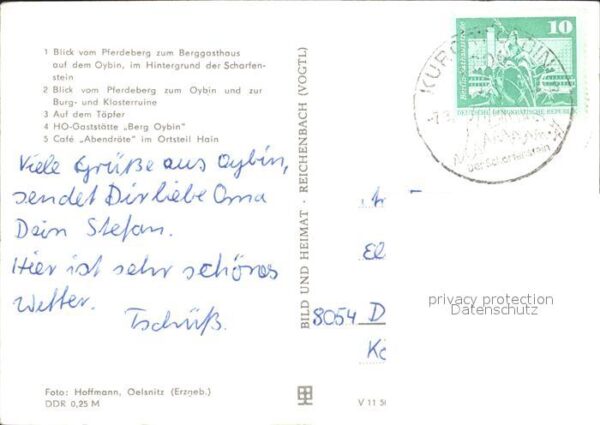 1 Blick vom Pferdeberg zum Berggasthaus
auf dem Oybin, im Hintergrund der Scharfen-
stein
2 Blick vom Pferdeberg zum Oybin und zur
Burg- und Klosterruine
3 Auf dem Töpfer
4 HO-Gaststätte „Berg Oybin"
5 Café „Abendröte" im Ortsteil Hain
Viele Grüße aus Oybin,
sendet Dir liebe Oma
Dein Stefan.
Hier ist sehr schönes
Wetter.
Tschüß.
Foto: Hoffmann, Oelsnitz (Erzgeb.)
DDR 0,25 M
BILD UND HEIMAT · REICHENBACH (VOGTL)
V 11 50
10
DEUTSCHE DEMOKRATISCHE REPUBLIK
KURORT OYBIN
der Scharfenstein
El
8054 D
Kö
privacy protection
Datenschutz